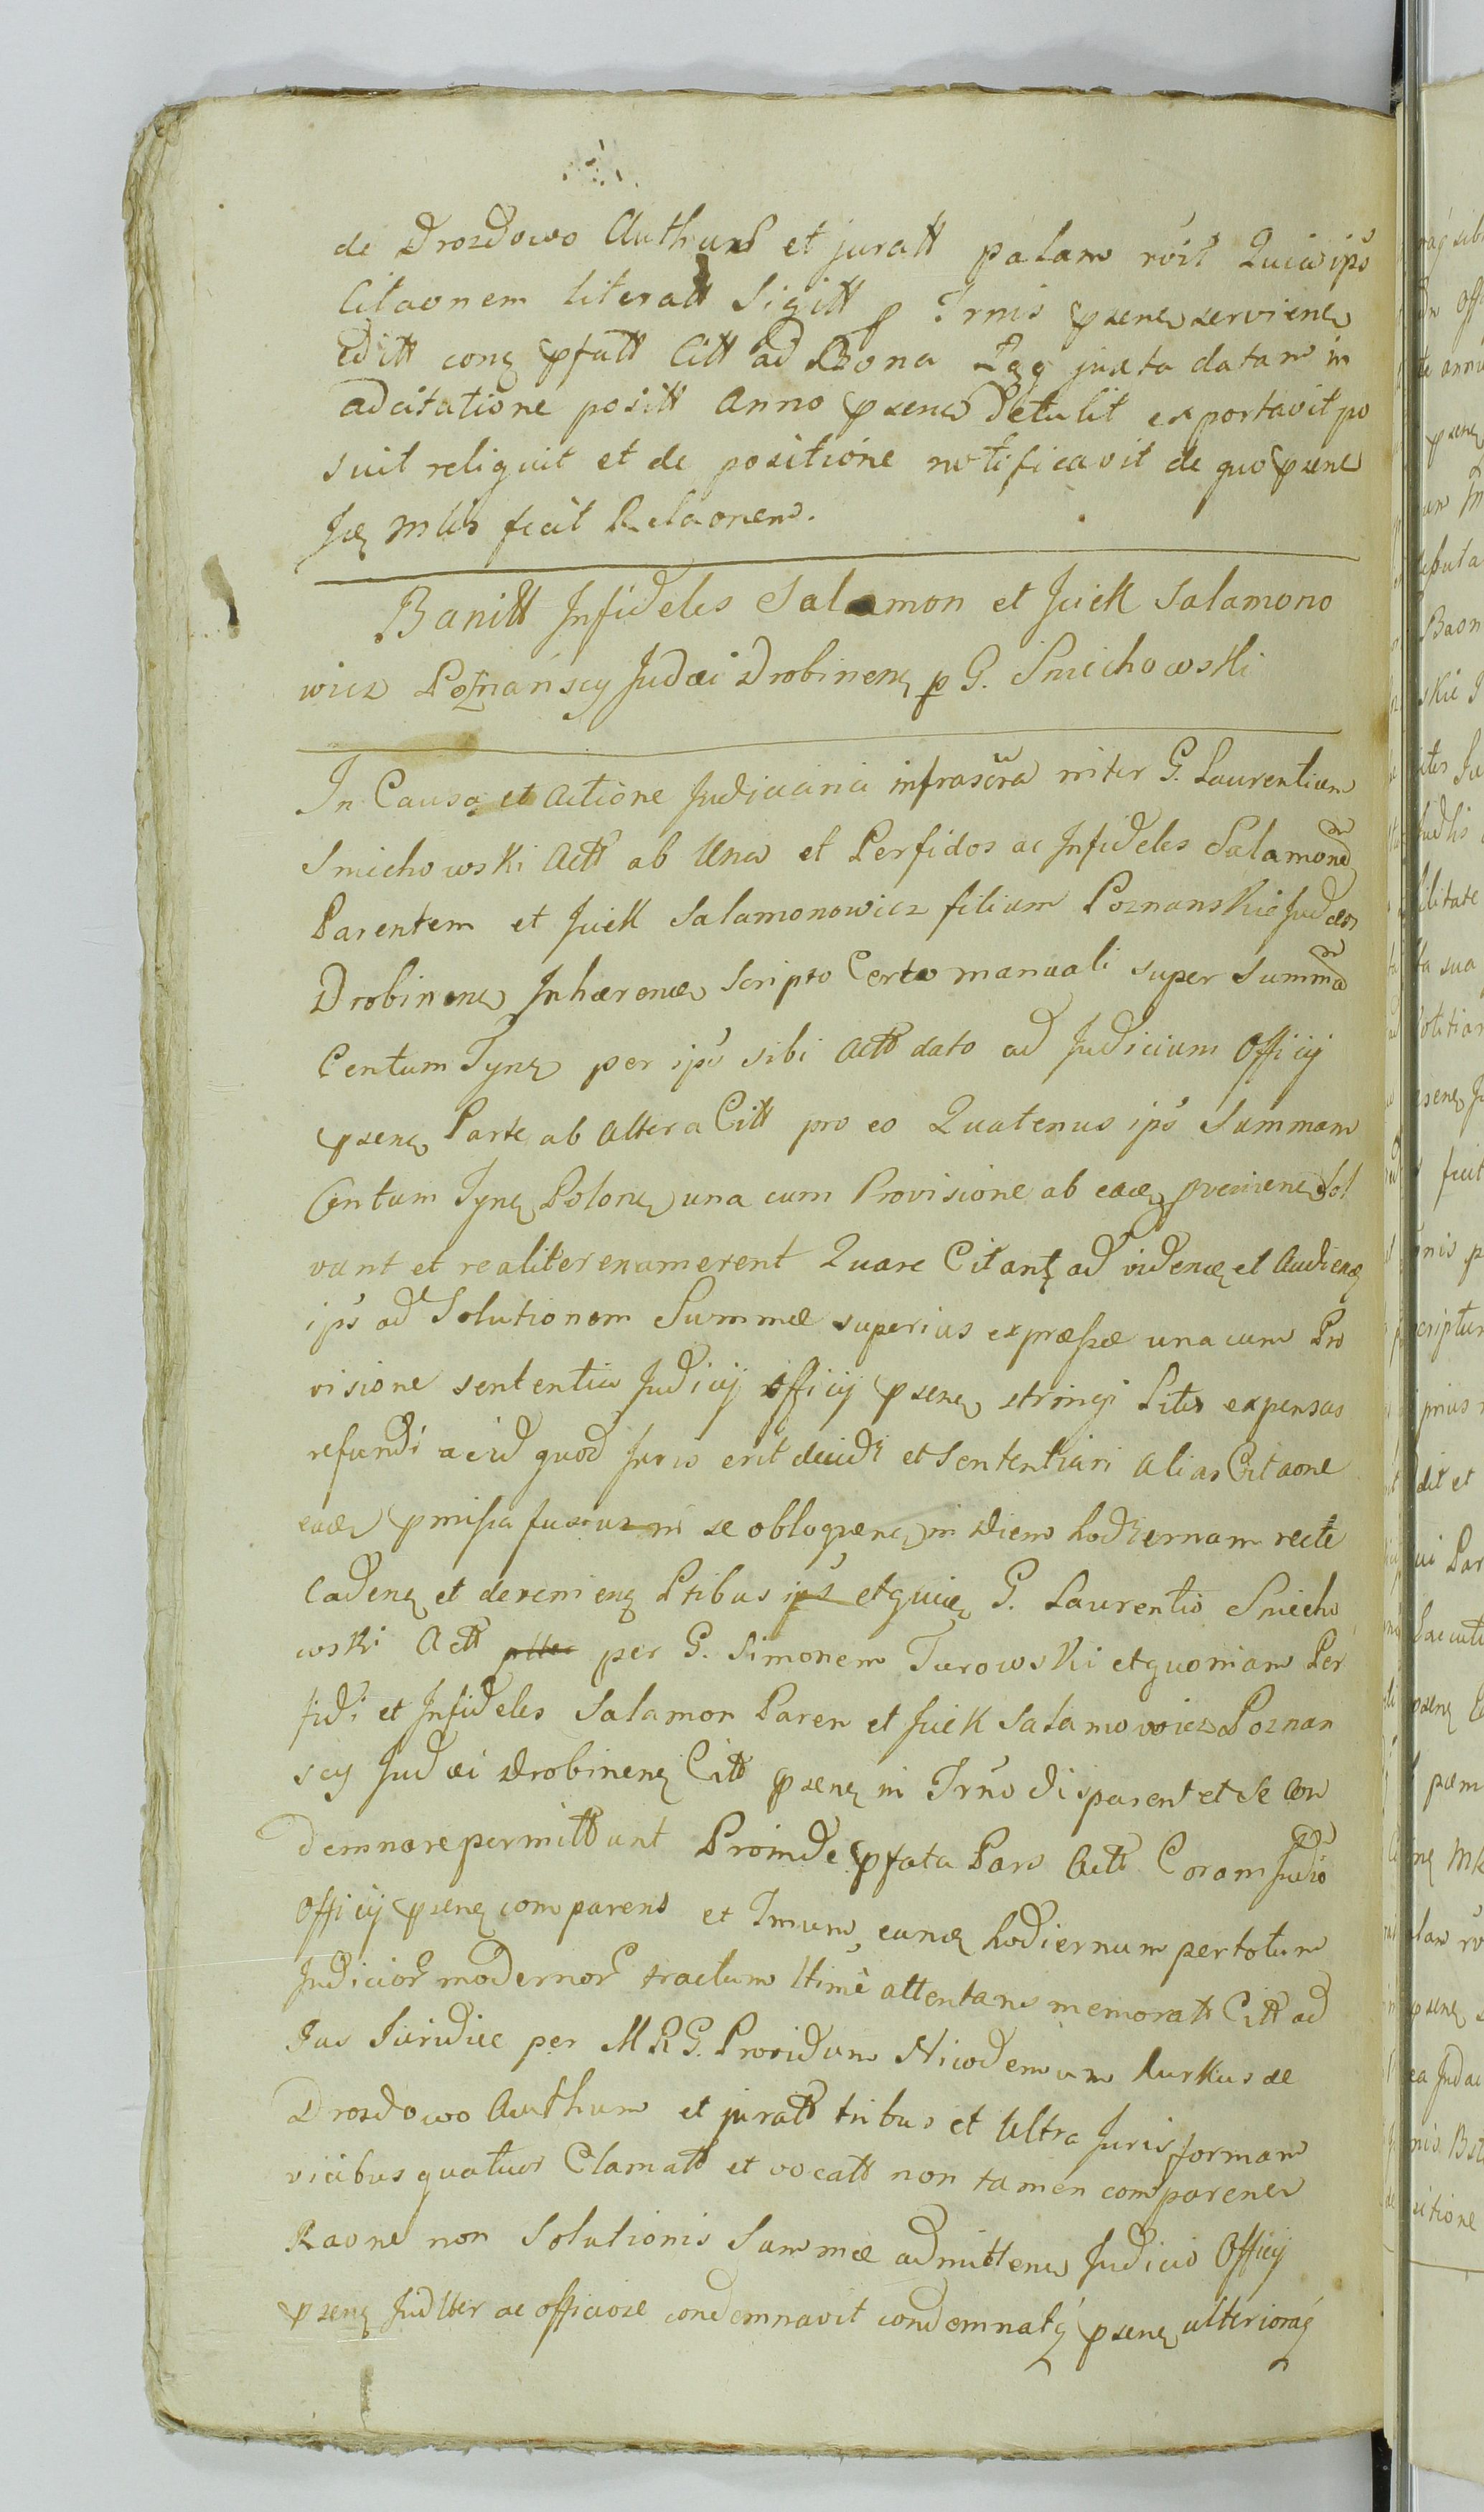 de Drozdowo Authum et juratt palam róit Quia ips
Citaonem literatt Sigitt p Trnis psenê serviene
Editt conz pfatt Citt ad Bona Lgg juxta datam in
adcitatione positt Anno psene detulit exportavit po
suit reliquit et de positione notificavit de quo psene
Jcz mlis fecit Relaonem.
Banitt Infideles Salamon et Jcick Salamono
wicz Poznańscy Judæi Drobinenz p G. Smichowski
In Causa et Actione Judiciaria infrascra inter G. Laurentium
Smichowski Actt ab Una et Perfidos ac Infideles Salamone
Parentem et Jcick Salamonowicz filium Poznanskie Judæos
Drobinenz Inhærenæ Scripto Certo manuali super Summa
Centum Tynz per ips sibi Actt dato ad Judicium Officÿ
psenz Parte ab altera Citt pro eo Quatenus ips Summam
Centum Tynz Polonz una cum Provisione ab eadz pvenienz Sol
vant et realiter enumerent Quare Citantz ad videnæ et Audienz
ips ad Solutionem Summæ superius expræssæ una cum Pro
visione sententia Judicÿ officÿ psenz stringi Litis expensas
refundi ac id quod Juris erit decidi et Sententiari alias Citaone
eadz pmissa fusius in se obloqvenz in Diem hodiernam recte
Cadenz et devenienz Ptibus ips et quia G. Laurentio Smicho
wski Actt per G. Simonem Turowski et quoniam Per
fidi et Infideles Salamon Paren et Jcick Salamowicz Poznan
scy Judæi Drobinenz Citt psenz in Trno disparent et Se Con
demnare permittunt Proinde pfata Pars Actt Coram Judio
Officÿ psenz comparens et Tmum eunz hodiernum per totum
Judicior modernor tractum ltime attentans memoratt Citt ad
Jus Juridice per M R G. Providum Nicodemum Kurkus de
Drozdowo Authum et juratt tribus et Ultra Juris formam
vicibus quatuor Clamatt et vocatt non tamen comparene
Raone non Solutionis Summæ admittens Judicio Officÿ
psenz Judlter ac officiose condemnavit condemnatq psenz ulterioraq